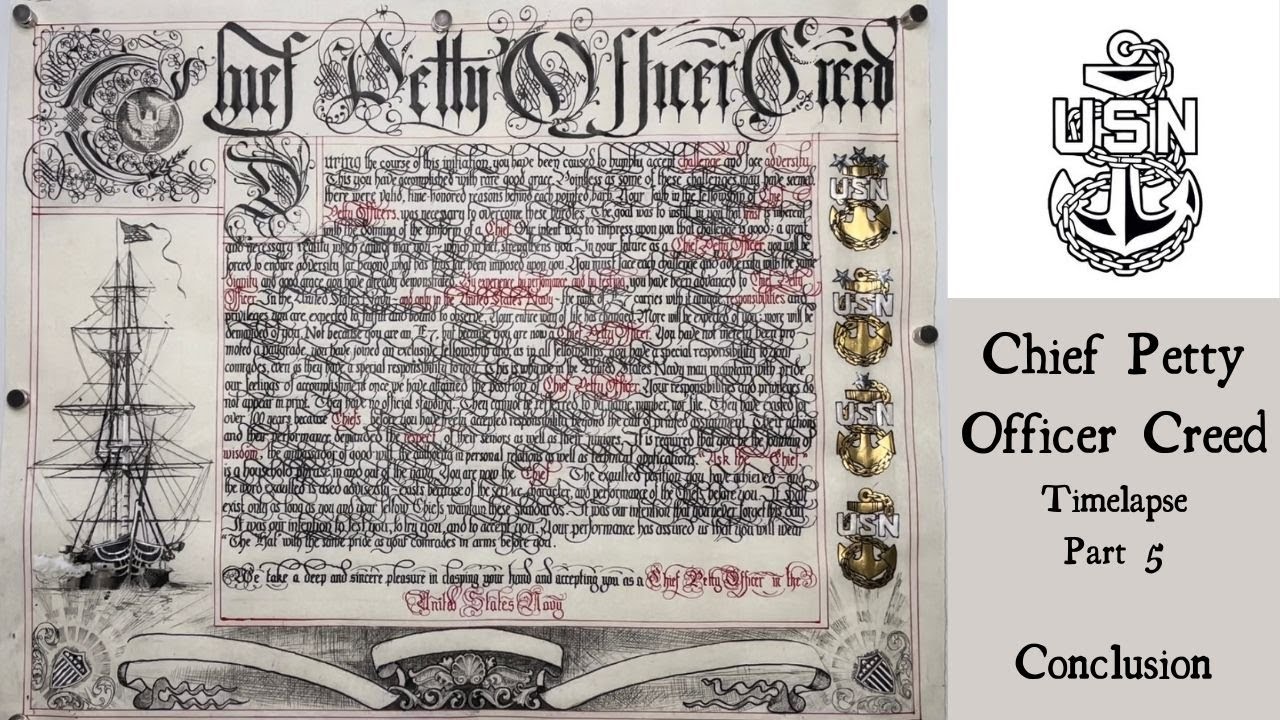 Chief Petty Officer Creed
During the course of this initiation, you have been caused to humbly accept challenge and face adversity.
This you have accomplished with rare good grace. Pointless as some of these challenges may have seemed
there were valid, time-honored reasons behind each pointed barb. Your faith in the fellowship of Chief
Petty Officers, was necessary to overcome these hurdles. The goal was to instill in you that trust is inherent
with the donning of the uniform of a Chief. Our intent was to impress upon you that challenge is good; a great
and necessary reality which cannot mar you - which in fact, strengthens you. In your future as a Chief Petty Officer, you will be
forced to endure adversity far beyond what has thus far been imposed upon you. You must face each challenge and adversity with the same
dignity and good grace you have already demonstrated. By experience, by performance, and by testing, you have been advanced to Chief Petty
Officer. In the United States Navy - and only in the United States Navy - the rank of E7 carries with it unique responsibilities and
privileges you are expected to fulfill and bound to observe. Your entire way of life has changed. More will be expected of you; more will be
demanded of you. Not because you are an E7, but because you are now a Chief Petty Officer. You have not merely been pro
moted a paygrade, you have joined an exclusive fellowship and, as in all fellowships, you have a special responsibility to your
comrades, even as they have a special responsibility to you. This is why we in the United States Navy may maintain with pride
our feelings of accomplishment once we have attained the position of Chief Petty Officer. Your responsibilities and privileges do
not appear in print. They have no official standing. They cannot be referred to by name, number, nor file. They have existed for
over 100 years because Chiefs before you have freely accepted responsibility beyond the call of printed assignment. Their actions
and their performance demanded the respect of their seniors as well as their juniors. It is required that you be the fountain of
wisdom, the ambassador of good will, the authority in personal relations as well as technical applications. "Ask the Chief"
is a household phrase in and out of the navy. You are now the "Chief". The exaulted position you have achieved - and
the word exaulted is used advisedly - exists because of the service, character, and performance of the Chiefs before you. It shall
exist only as long as you and your fellow Chiefs maintain these standards. It was our intention that you never forget this day.
It was our intention to test you, to try you, and to accept you. Your performance has assured us that you will wear
"The Hat" with the same pride as your comrades in arms before you.
We take a deep and sincere pleasure in clasping your hand and accepting you as a Chief Petty Officer in the
United States Navy
USN
USN
USN
USN
USN
Chief Petty
Officer Creed
Timelapse
Part 5
Conclusion